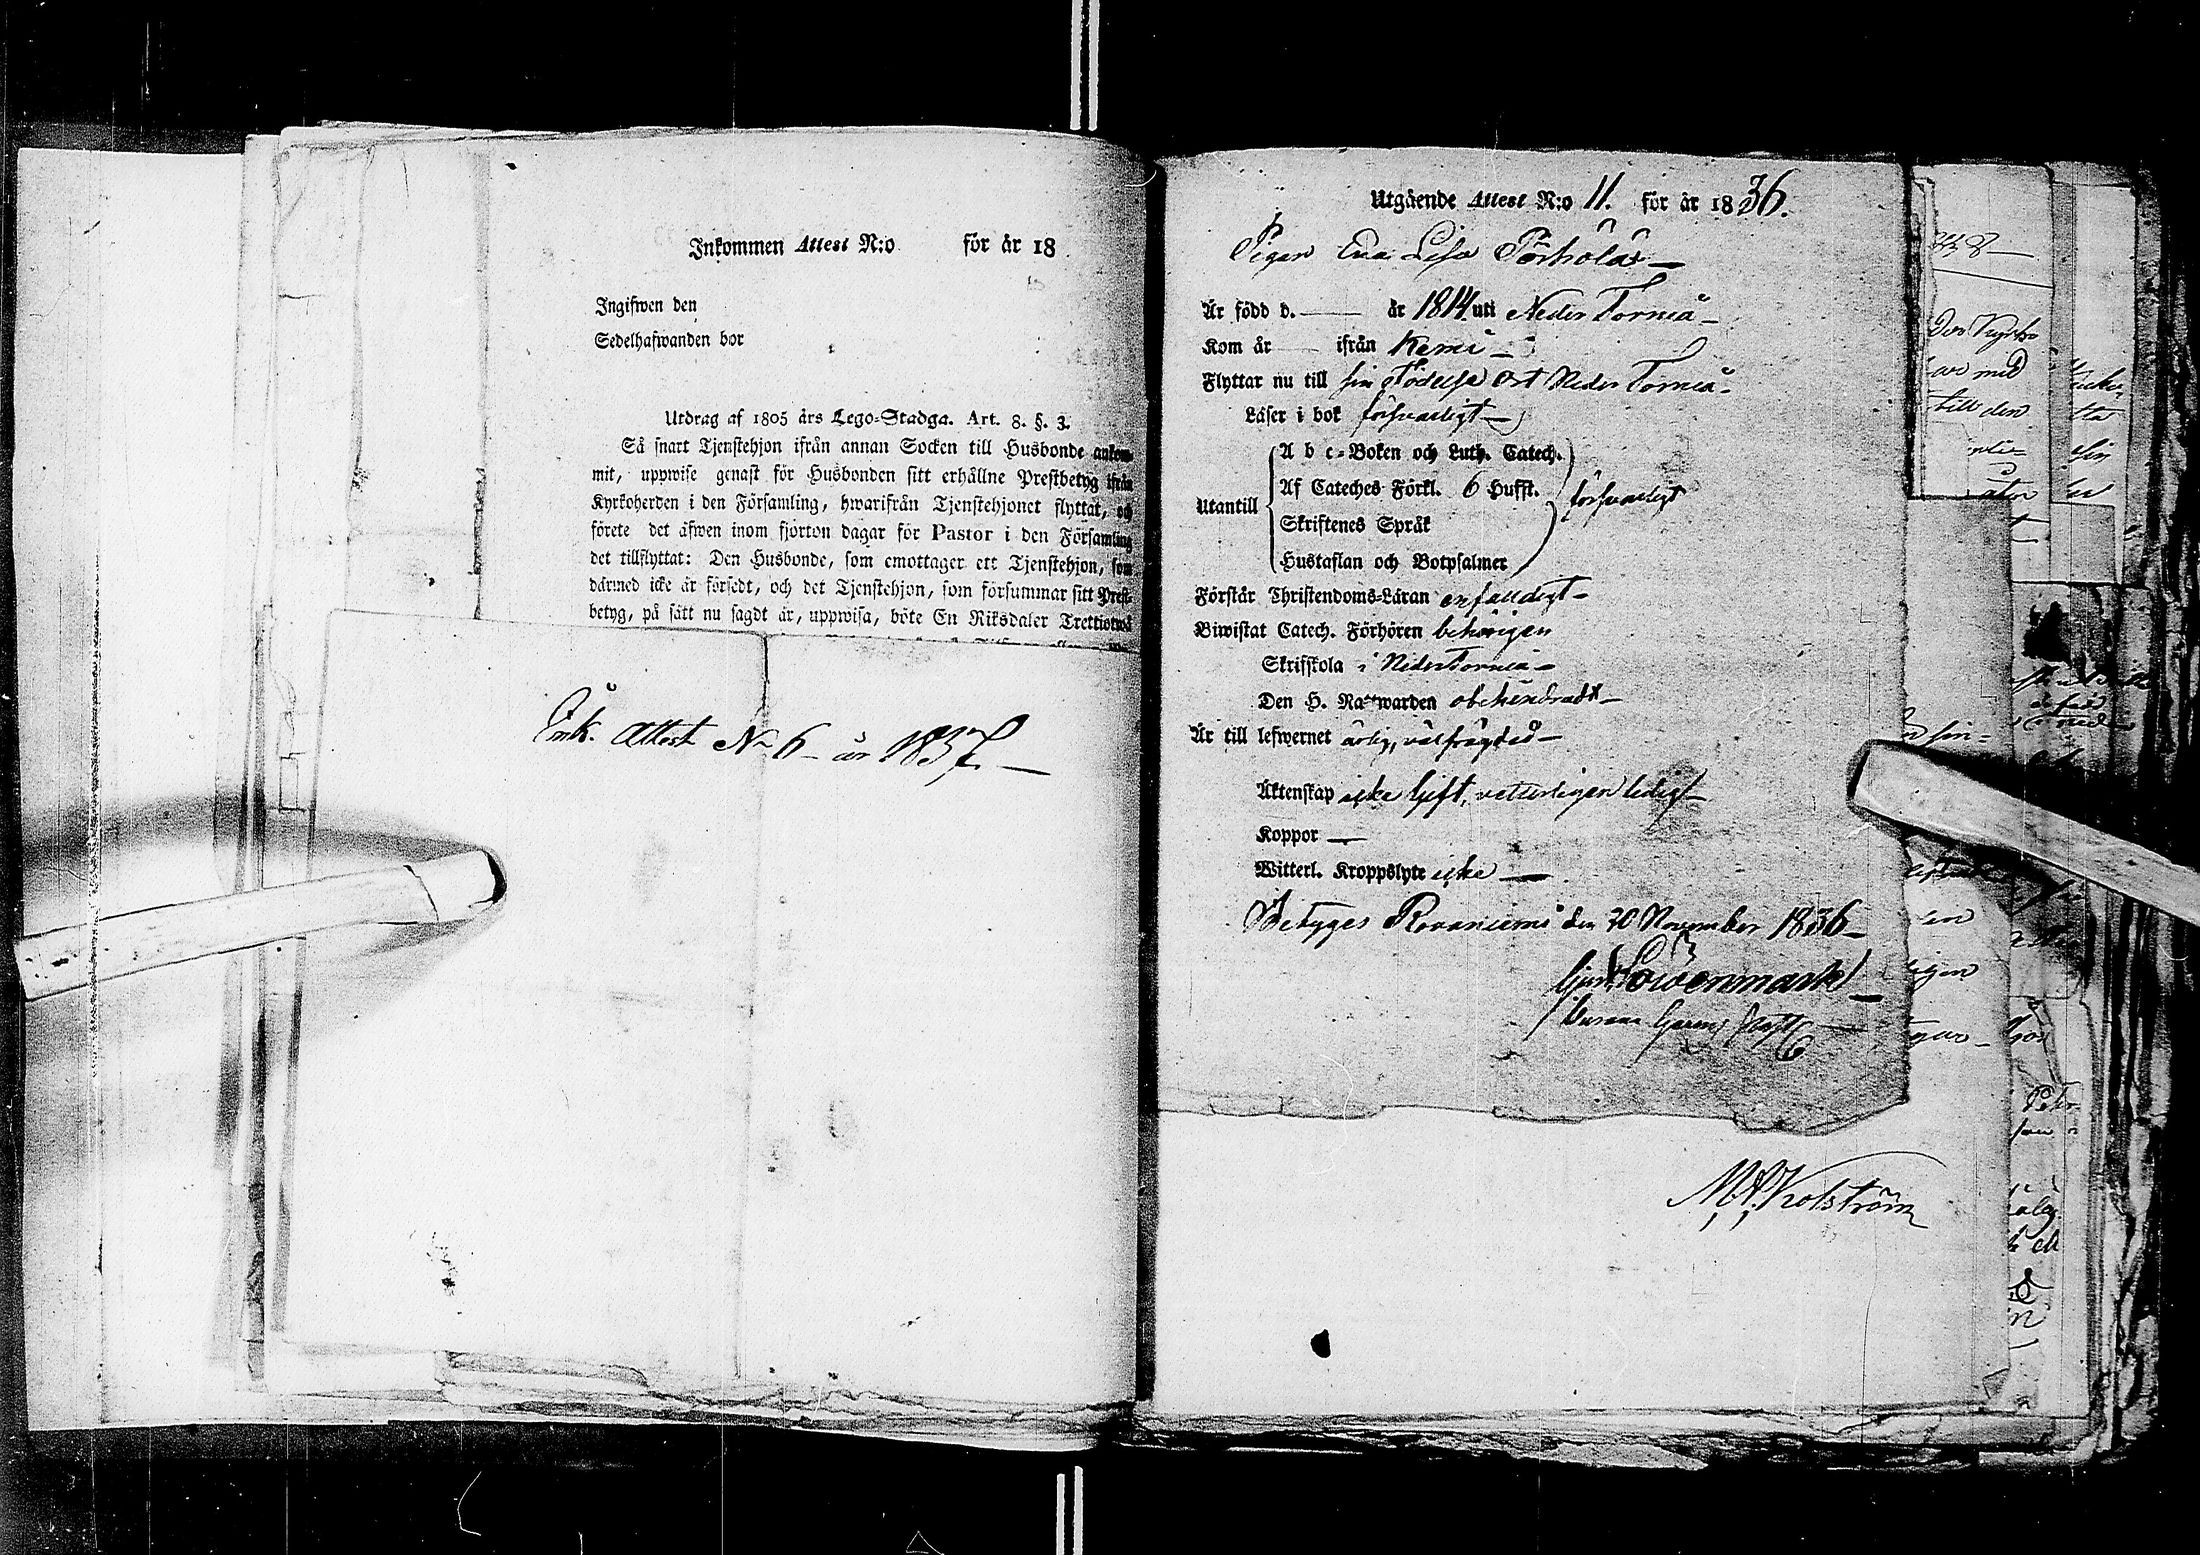 Inkommen Attest N:o för år 18
Ingifwen den
Sedelhafwanden bor
Utdrag af 1805 års Lego-Stadga. Art. 8. §. 3.
Så snart Tjenstehjon ifrån annan Socken till Husbonde ankom-
mit, uppwise genast för Husbonden sitt erhållne Prestbetyg ifrån
Kyrkoherden i den Församling, hwarifrån Tjenstehjonet flyttat, och
förete det äfwen inom fjorton dagar för Pastor i den Församling
det tillflyttat: Den Husbonde, som emottager ett Tjenstehjon, som
därmed icke är försedt, och det Tjenstehjon, som försummar sitt Prest-
betyg, på sätt nu sagdt är, uppwisa, böte En Riksdaler Trettiotwå
Ink. Attest No 6 år 1837.
Utgående Attest N:o 11. för år 1836.
Pigan Eva Lisa Pörhölä
Är född d. — år 1814 uti Neder Torneå
Kom år — ifrån Kemi
Flyttar nu till sin Födelse Ort Neder Torneå
Läser i bok försvarligt
A b c-Boken och Luth. Catech.
Af Cateches Förkl. 6 Hufst. försvarligt
Utantill
Skriftenes Språk
Hustaflan och Botpsalmer
Förstår Christendoms-Läran enfaldigt
Biwistat Catech. Förhören behörigen
Skriftskola i Neder Torneå
Den H. Nattwarden obehindradt
Är till lefwernet ärlig, välfrägdad
Äktenskap icke gift, veterligen ledig
Koppor —
Witterl. Kroppslyte icke —
Betyges Rovaniemi den 20 November 1836
Löwenmark
M. Kolström